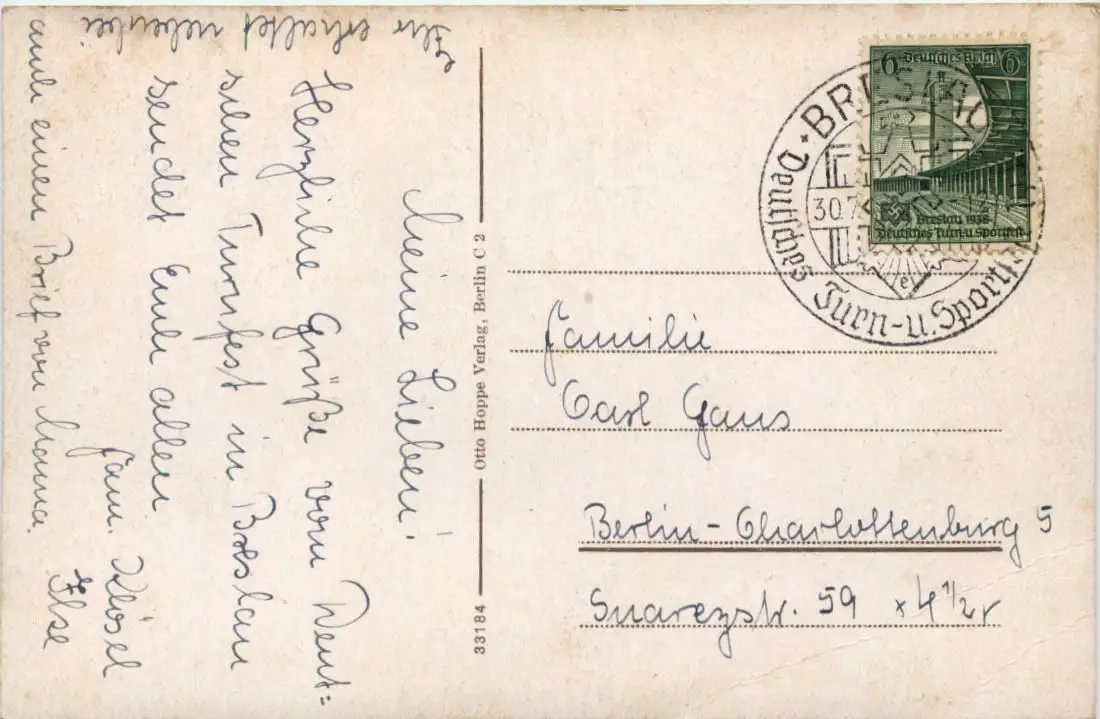 Meine Lieben!
Herzliche Grüße vom Deut=
schen Turnfest in Breslau
sendet Euch allen
Fam. Klösel
Ilse
Ihr erhaltet nebenbei
auch einen Brief von Mama.
33184
Otto Hoppe Verlag, Berlin C 2
6 Deutsches Reich 6
Breslau 1938
Deutsches Turn-u. Sportfest
BRESLAU
30.7
12
e
Deutsches Turn-u. Sportf
Familie
Carl Gans
Berlin-Charlottenburg 5
Suarezstr. 59 x 4 1/2 r